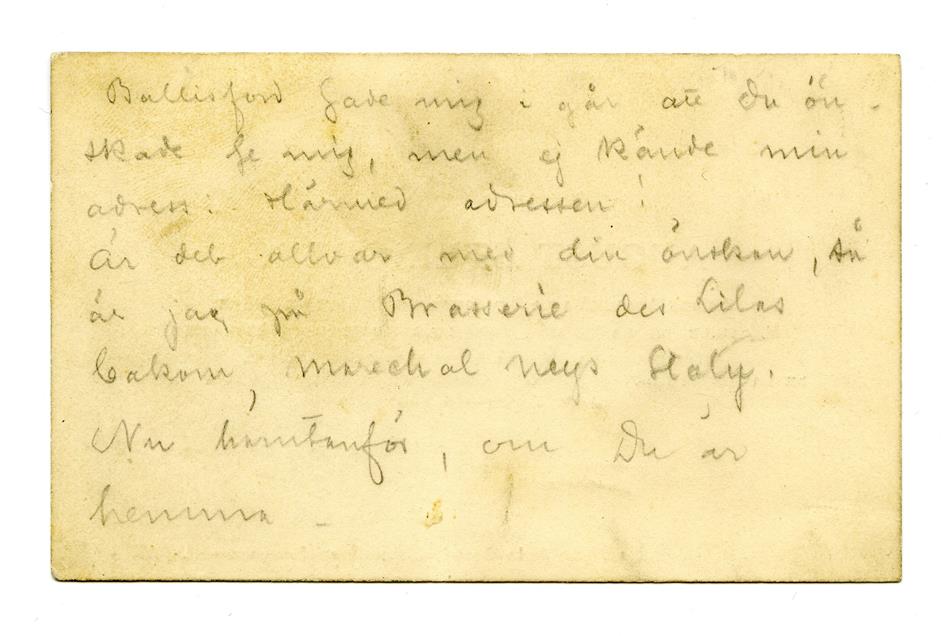 Ballisford Sade mig i går att Du ön-
skade se mig, men ej kände min
adress. Härmed adressen!
Är det allvar med din önskan, så
är jag på Brasserie des Lilas
bakom, Marechal Neys Staty.
Nu häremtanför, om Du är
hemma –